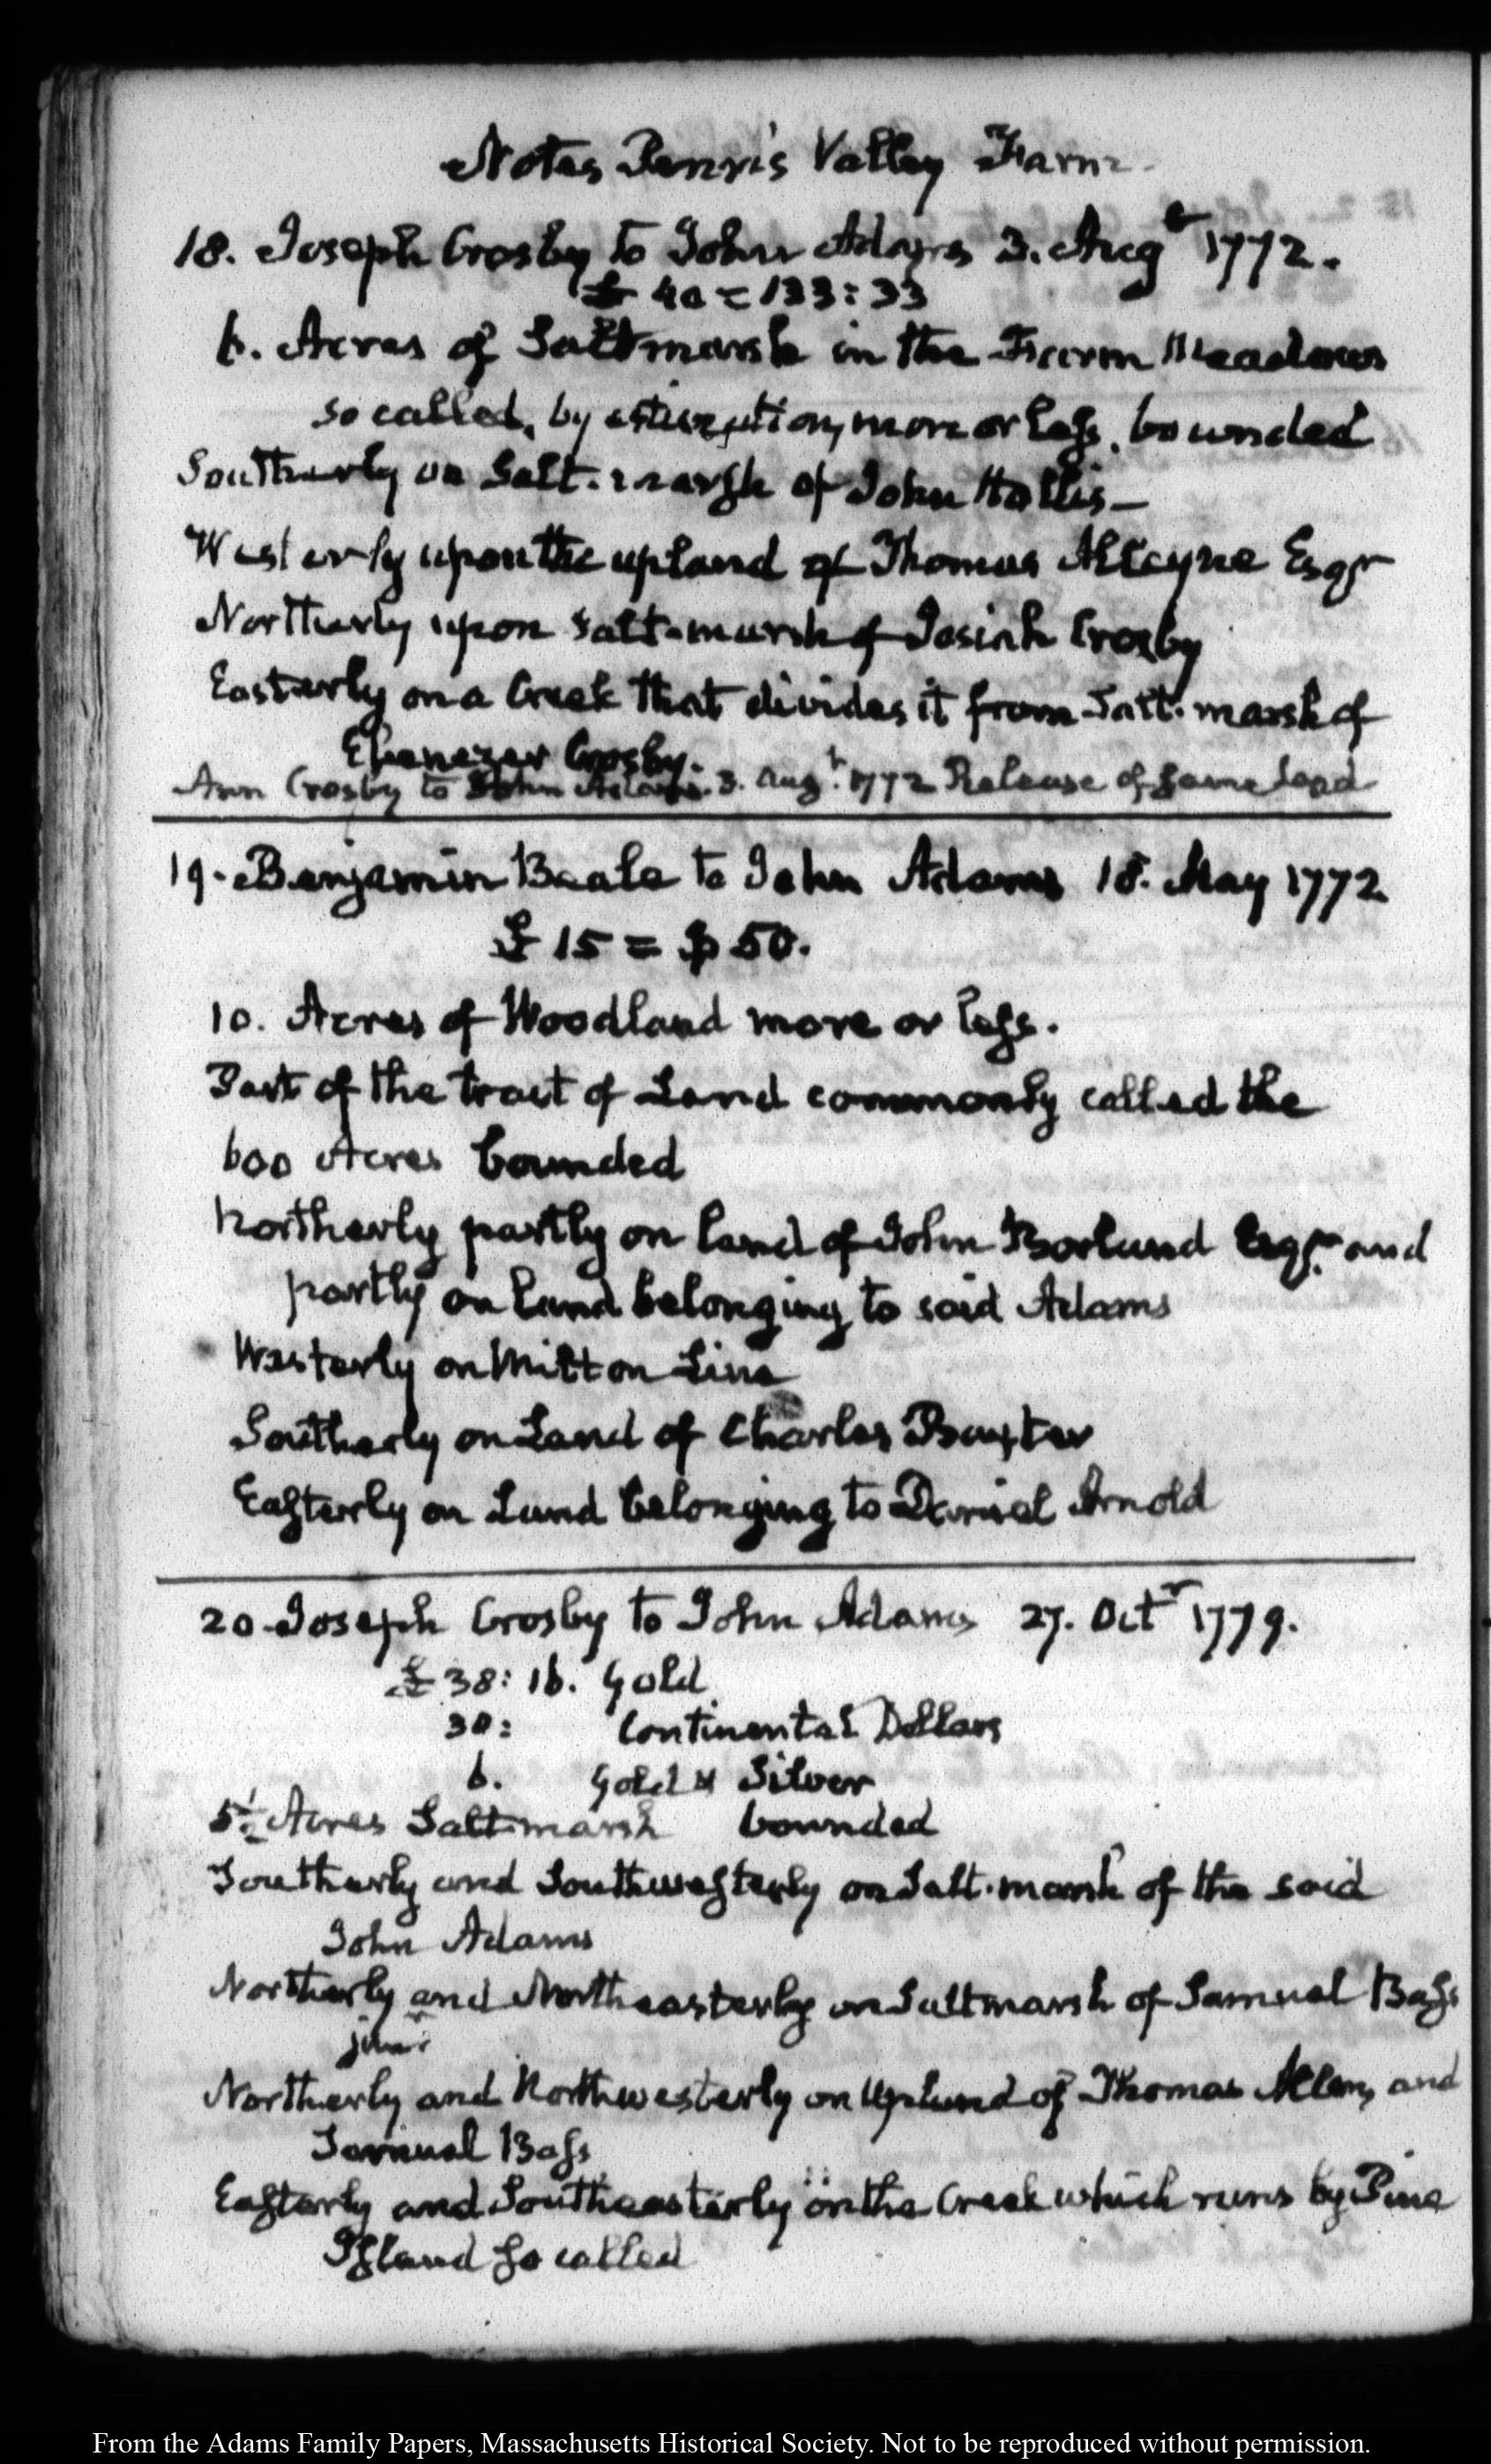 Notes Penn's Valley Farm
18. Joseph Crosby to John Adams 3. Augt 1772.
£ 40 = 133:33
6. Acres of Saltmarsh in the Farm Meadows
so called, by estimation, more or less, bounded
Southerly on Salt-marsh of John Hollis—
Westerly upon the upland of Thomas Alleyne Esqr
Northerly upon Salt-marsh of Josiah Crosby
Easterly on a Creek that divides it from Salt-marsh of
Ebenezer Crosby.
Ann Crosby to John Adams. 3. Augt. 1772 Release of same land
19. Benjamin Beale to John Adams 18. May 1772
£ 15 = $ 50.
10. Acres of Woodland more or less.
Part of the tract of Land commonly called the
600 Acres bounded
Northerly partly on land of John Borland Esqr. and
partly on land belonging to said Adams
Westerly on Milton Line
Southerly on Land of Charles Baxter
Easterly on Land belonging to Daniel Arnold
20. Joseph Crosby to John Adams 27. Octr 1779.
£ 38: 16. Gold
30: Continental Dollars
6. Gold & Silver
5½ Acres Saltmarsh bounded
Southerly and Southwesterly on Salt-marsh of the said
John Adams
Northerly and Northeasterly on Saltmarsh of Samuel Bass
junr
Northerly and Northwesterly on Upland of Thomas Allen, and
Samuel Bass
Easterly and Southeasterly on the Creek which runs by Pine
Island so called
From the Adams Family Papers, Massachusetts Historical Society. Not to be reproduced without permission.